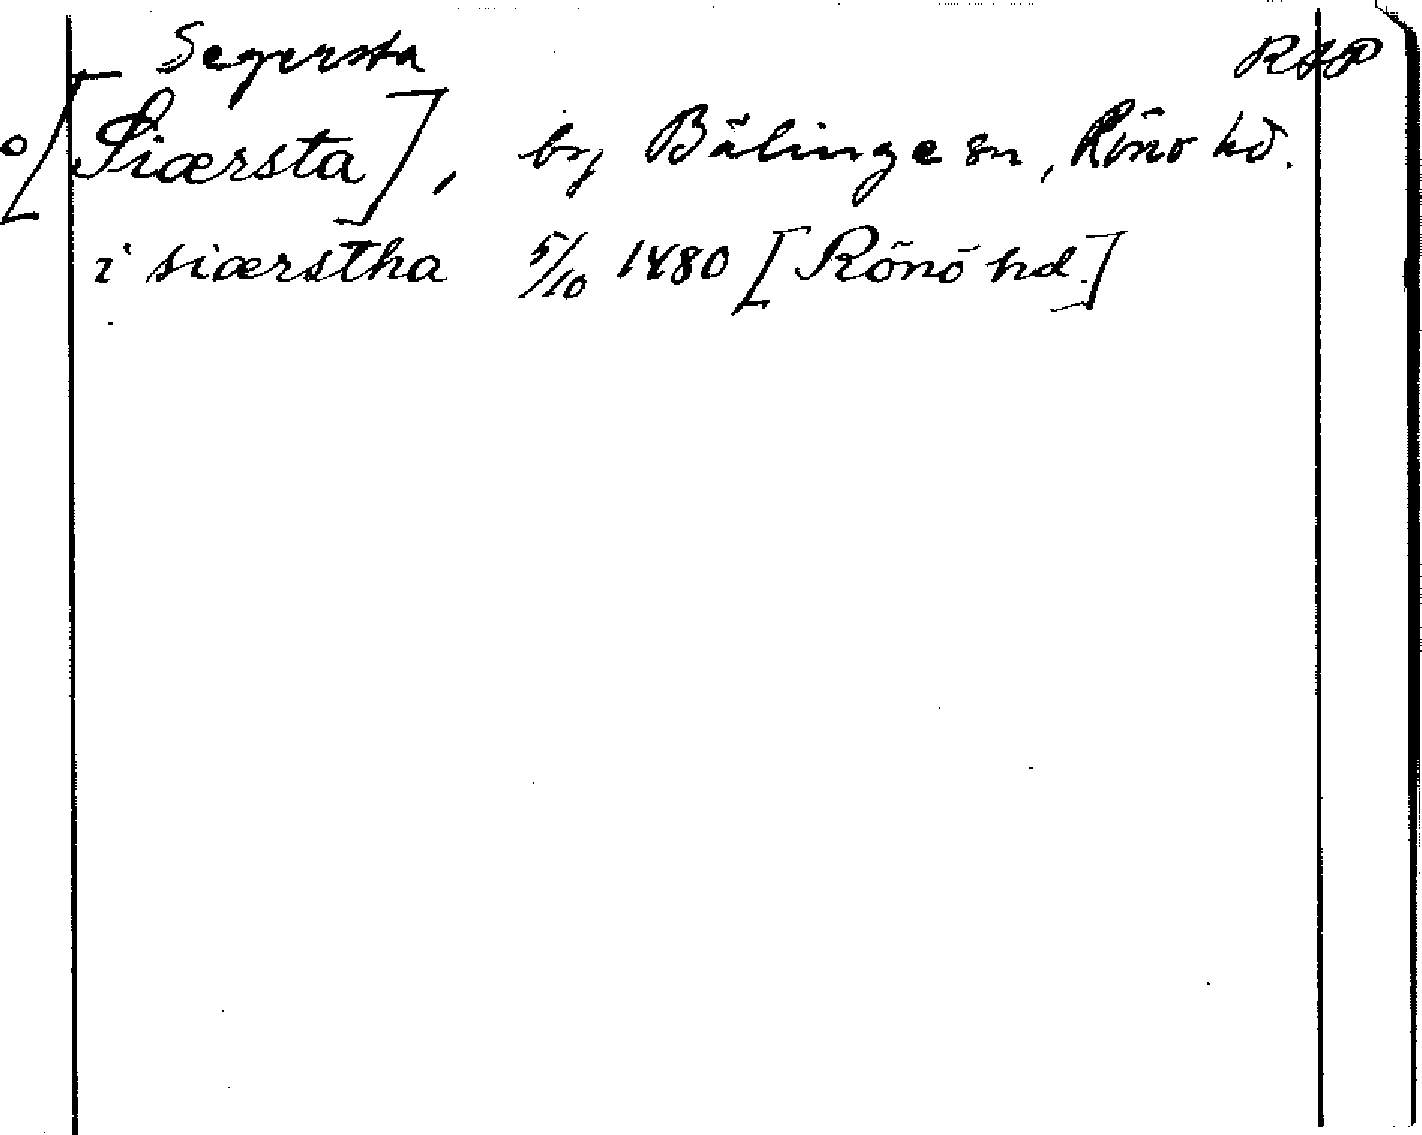 Segersta RAP
o [Siærsta], by Bälinge sn, Rönö hd.
i siærstha 5/10 1480 [Rönö hd.]